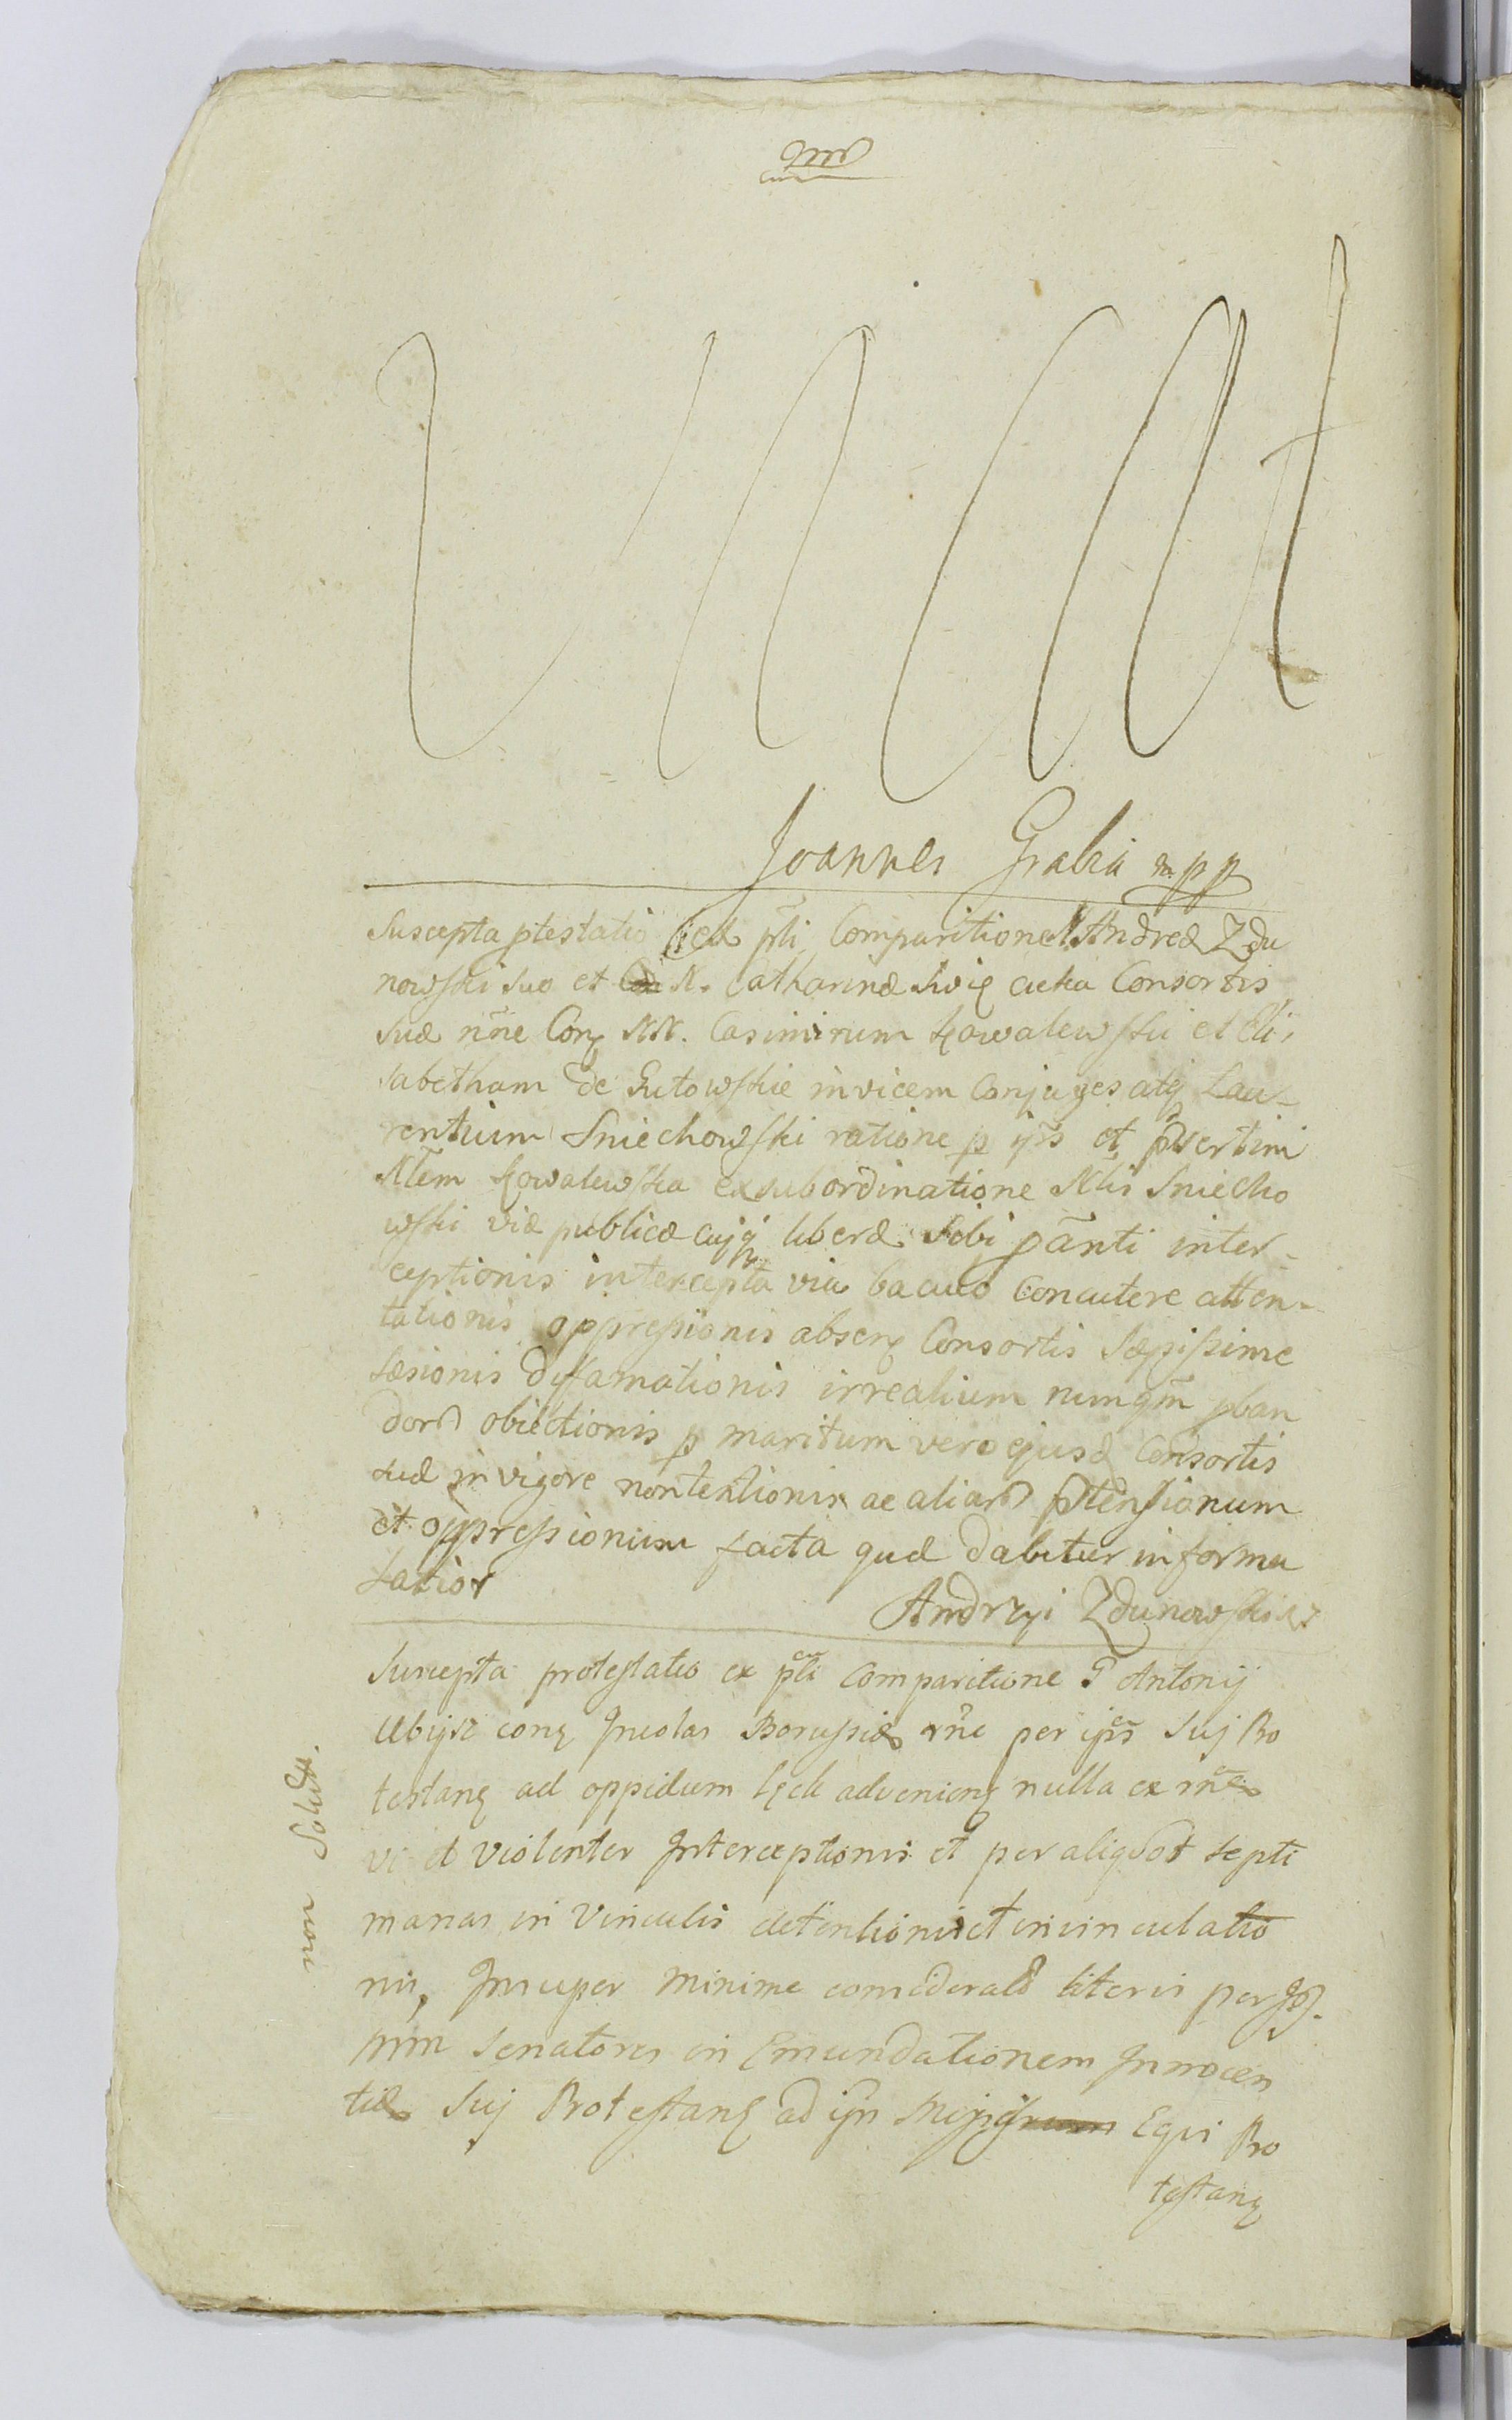 vacat
Joannes Grabia mpp
Suscepta ptestatio ex pli Comparitione N. Andreæ Zdu
nowski suo et N. Catharinæ Consortis
suæ nne Conq NN. Casimirum Kowalewski et Eli,
sabetham de Gutowskie invicem Conjuges atq Lau-
rentium Sniechowski ratione p ips et psertim
Nlem Kowalewska ex subordinatione Nlis Sniecho
wski viæ publicæ cujq liberæ sibi panti inter-
ceptionis intercepta via baculo concutere atten-
tationis oppressionis absenq Consortis sæpissime
læsionis diffamationis irrealium nunqm pban
dor obiectionis p maritum vero ejusd Consortis
suæ in vigore nontentionis ac aliar ptensionum
et oppressionum facta quæ dabitur in forma
latior
Andrzyi Zdunowski
Suscepta protestatio ex pli comparitione G Antonij
Ubysz conq Incolas Borussiæ rne per ips Suj Pro
testanq ad oppidum Kck advenienq nulla ex rne
vi et violenter Interceptionis et per aliqvot septi
manas in Vinculis detentionis et invinculatio
nis, Insuper minime considerat literis per
mm Senatores in Emundationem Innocen
tiæ Suj Protestanq ad ips Eqvi Pro
testanq
non Solvit.